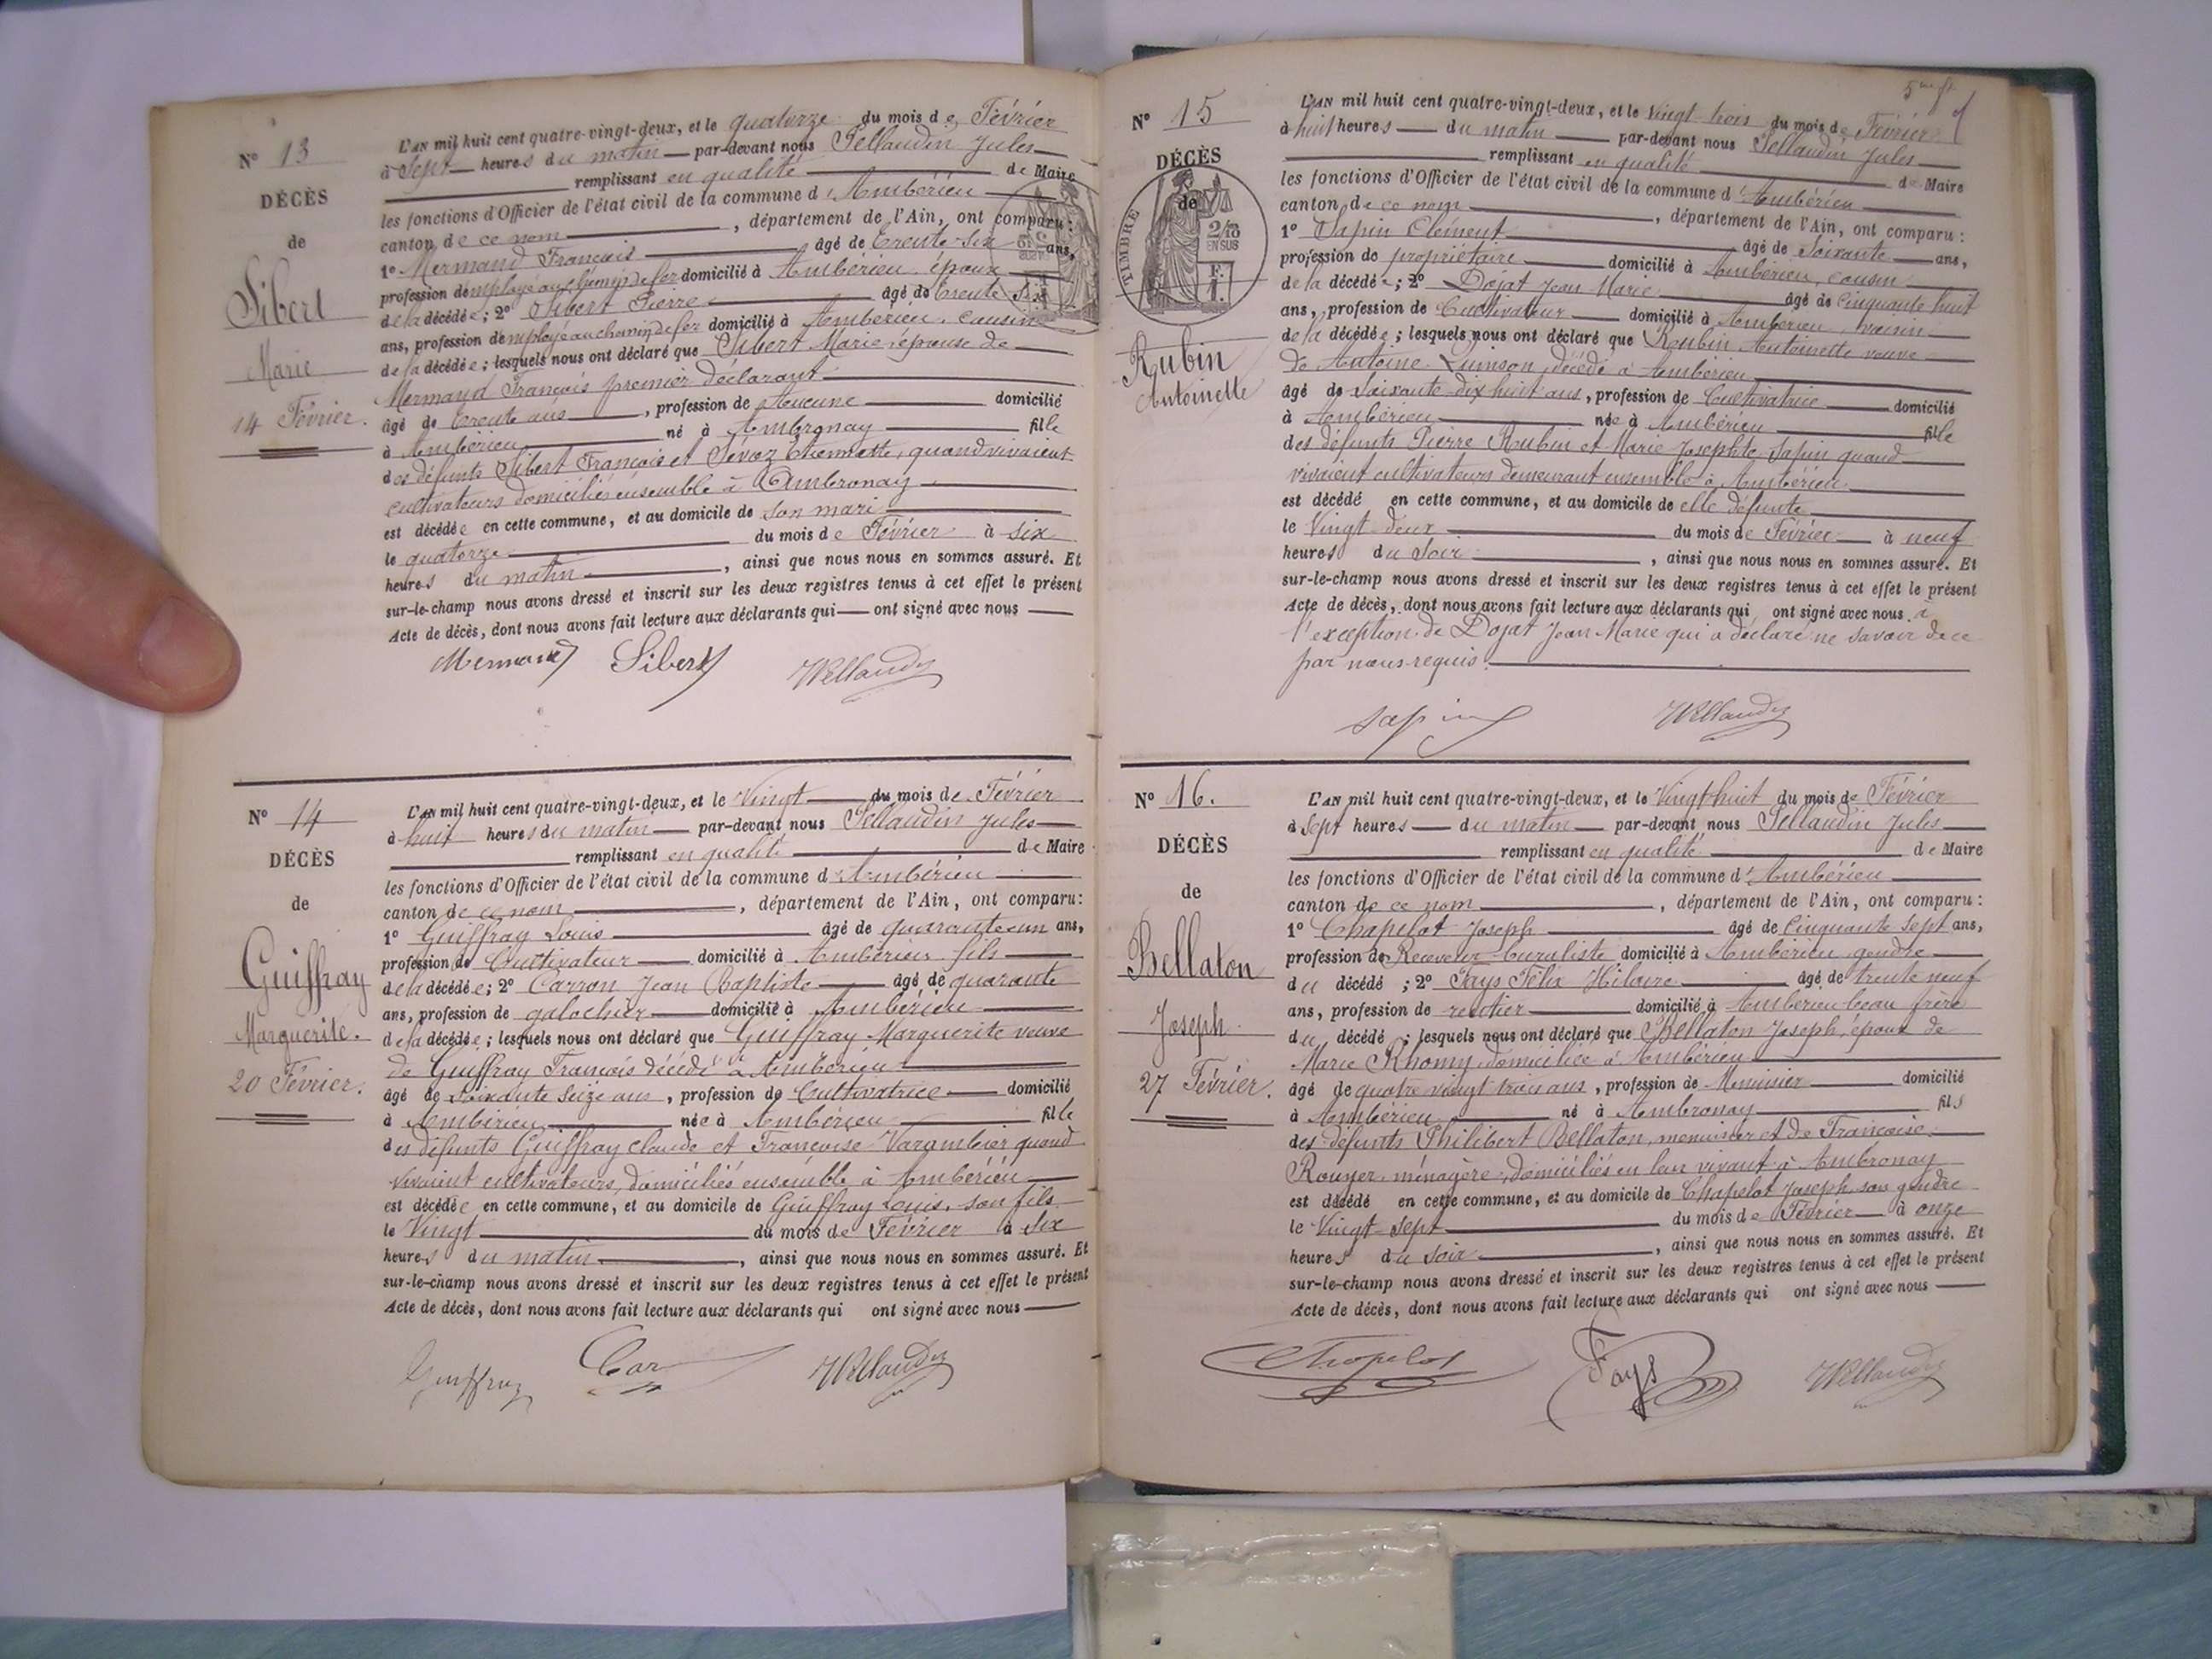 N° 13
DÉCÈS
de
Sibert
Marie
14 Février.
L'AN mil huit cent quatre-vingt-deux, et le quatorze du mois de Février
à Sept heures du matin par-devant nous Pellaudin Jules
remplissant en qualité de Maire
les fonctions d'Officier de l'état civil de la commune d'Ambérieu
canton de ce nom, département de l'Ain, ont comparu :
1° Mermand François âgé de trente-six ans,
profession d'employé au chemin de fer domicilié à Ambérieu, époux
de la décédée ; 2° Sibert Pierre âgé de trente six
ans, profession d'employé au chemin de fer domicilié à Ambérieu, cousin
de la décédée ; lesquels nous ont déclaré que Sibert Marie, épouse de
Mermand François premier déclarant
âgé de trente ans, profession de Aucune domicilié
à Ambérieu né à Ambronay fille
des défunts Sibert François et Sévoz Etiennette, quand vivaient
cultivateurs domiciliés ensemble à Ambronay
est décédée en cette commune, et au domicile de son mari
le quatorze du mois de Février à six
heures du matin, ainsi que nous nous en sommes assuré. Et
sur-le-champ nous avons dressé et inscrit sur les deux registres tenus à cet effet le présent
Acte de décès, dont nous avons fait lecture aux déclarants qui ont signé avec nous
Mermand Sibert JPellaudin
N° 14
DÉCÈS
de
Guiffray
Marguerite.
20 Février.
L'AN mil huit cent quatre-vingt-deux, et le Vingt du mois de Février
à huit heures du matin par-devant nous Pellaudin Jules
remplissant en qualité de Maire
les fonctions d'Officier de l'état civil de la commune d'Ambérieu
canton de ce nom, département de l'Ain, ont comparu :
1° Guiffray Louis âgé de quarante un ans,
profession de Cultivateur domicilié à Ambérieu fils
de la décédée ; 2° Carron Jean Baptiste âgé de quarante
ans, profession de galochier domicilié à Ambérieu
de la décédée ; lesquels nous ont déclaré que Guiffray Marguerite veuve
de Guiffray François décédé à Ambérieu
âgé de soixante seize ans, profession de Cultivatrice domicilié
à Ambérieu née à Ambérieu fille
des défunts Guiffray Claude et Françoise Varambier quand
vivaient cultivateurs, domiciliés ensemble à Ambérieu
est décédée en cette commune, et au domicile de Guiffray Louis, son fils
le Vingt du mois de Février à Six
heures du matin, ainsi que nous nous en sommes assuré. Et
sur-le-champ nous avons dressé et inscrit sur les deux registres tenus à cet effet le présent
Acte de décès, dont nous avons fait lecture aux déclarants qui ont signé avec nous
Guiffray Car JPellaudin
N° 15
DÉCÈS
de
TIMBRE
2/10
EN SUS
Rubin
Antoinette
L'AN mil huit cent quatre-vingt-deux, et le Vingt trois du mois de Février
à huit heures du matin par-devant nous Pellaudin Jules
remplissant en qualité de Maire
les fonctions d'Officier de l'état civil de la commune d'Ambérieu
canton de ce nom, département de l'Ain, ont comparu :
1° Sapin Clément âgé de Soixante ans,
profession de propriétaire domicilié à Ambérieu, cousin
de la décédée ; 2° Dojat Jean Marie âgé de Cinquante huit
ans, profession de Cultivateur domicilié à Ambérieu, voisin
de la décédée ; lesquels nous ont déclaré que Roubin Antoinette veuve
de Antoine Quinson, décédé à Ambérieu
âgé de Soixante-dix huit ans, profession de Cultivatrice domicilié
à Ambérieu née à Ambérieu fille
des défunts Pierre Rubin et Marie Josephte Sapin quand
vivaient cultivateurs demeurant ensemble à Ambérieu
est décédé en cette commune, et au domicile de elle défunte
le Vingt deux du mois de Février à neuf
heures du Soir, ainsi que nous nous en sommes assuré. Et
sur-le-champ nous avons dressé et inscrit sur les deux registres tenus à cet effet le présent
Acte de décès, dont nous avons fait lecture aux déclarants qui ont signé avec nous à
l'exception de Dojat Jean Marie qui a déclaré ne savoir de ce
par nous requis.
Sapin JPellaudin
N° 16.
DÉCÈS
de
Bellaton
Joseph
27 Février.
L'AN mil huit cent quatre-vingt-deux, et le Vingt huit du mois de Février
à Sept heures du matin par-devant nous Pellaudin Jules
remplissant en qualité de Maire
les fonctions d'Officier de l'état civil de la commune d'Ambérieu
canton de ce nom, département de l'Ain, ont comparu :
1° Chapelot Joseph âgé de Cinquante sept ans,
profession de Receveur buraliste domicilié à Ambérieu, gendre
du décédé ; 2° Fays Félix Hilaire âgé de trente neuf
ans, profession de rentier domicilié à Ambérieu beau frère
du décédé ; lesquels nous ont déclaré que Bellaton Joseph, époux de
Marie Rhomy, domiciliée à Ambérieu
âgé de quatre vingt trois ans, profession de Menuisier domicilié
à Ambérieu né à Ambronay fils
des défunts Philibert Bellaton, menuisier et de Françoise
Rouyer, ménagère, domiciliés en leur vivant à Ambronay
est décédé en cette commune, et au domicile de Chapelot Joseph, son gendre
le Vingt-Sept du mois de Février à onze
heures du soir, ainsi que nous nous en sommes assuré. Et
sur-le-champ nous avons dressé et inscrit sur les deux registres tenus à cet effet le présent
Acte de décès, dont nous avons fait lecture aux déclarants qui ont signé avec nous
Chapelot Fays JPellaudin